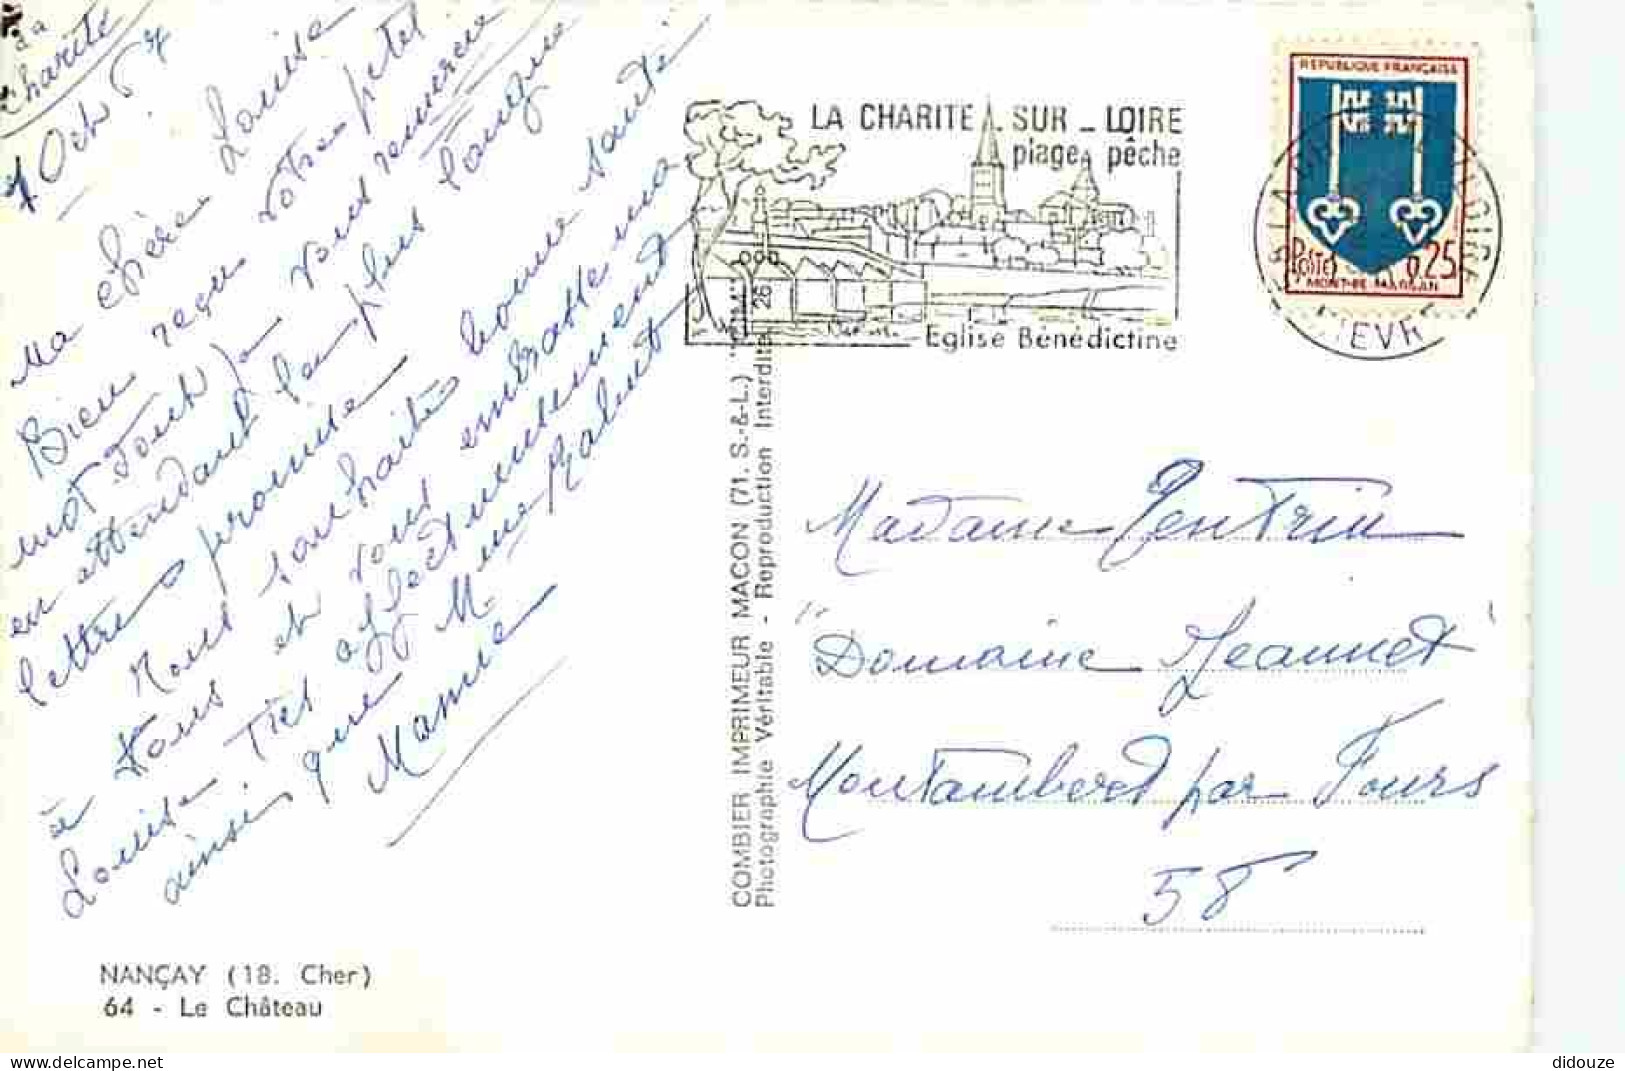 La
Charité
1 Oct 67
Ma chère Louise
Bien reçu votre petit
mot Touch je vous remercie
en attendant la plus longue
lettre promise
Nous souhaitons bonne santé
à tous et vous embrasse ma
Louise Très affectueusement
ainsi que M. Mme
Mamie
NANÇAY (18. Cher)
64 - Le Château
COMBIER IMPRIMEUR MACON (71. S.-&-L.) "CIM"
Photographie Véritable - Reproduction Interdite
26
LA CHARITE - SUR - LOIRE
plage, pêche
Eglise Bénédictine
REPUBLIQUE FRANÇAISE
POSTES 0,25
MONT-DE-MARSAN
NIEVRE
Madame Gentrin
"Domaine Jeannet"
Montambert par Fours
58
didouze